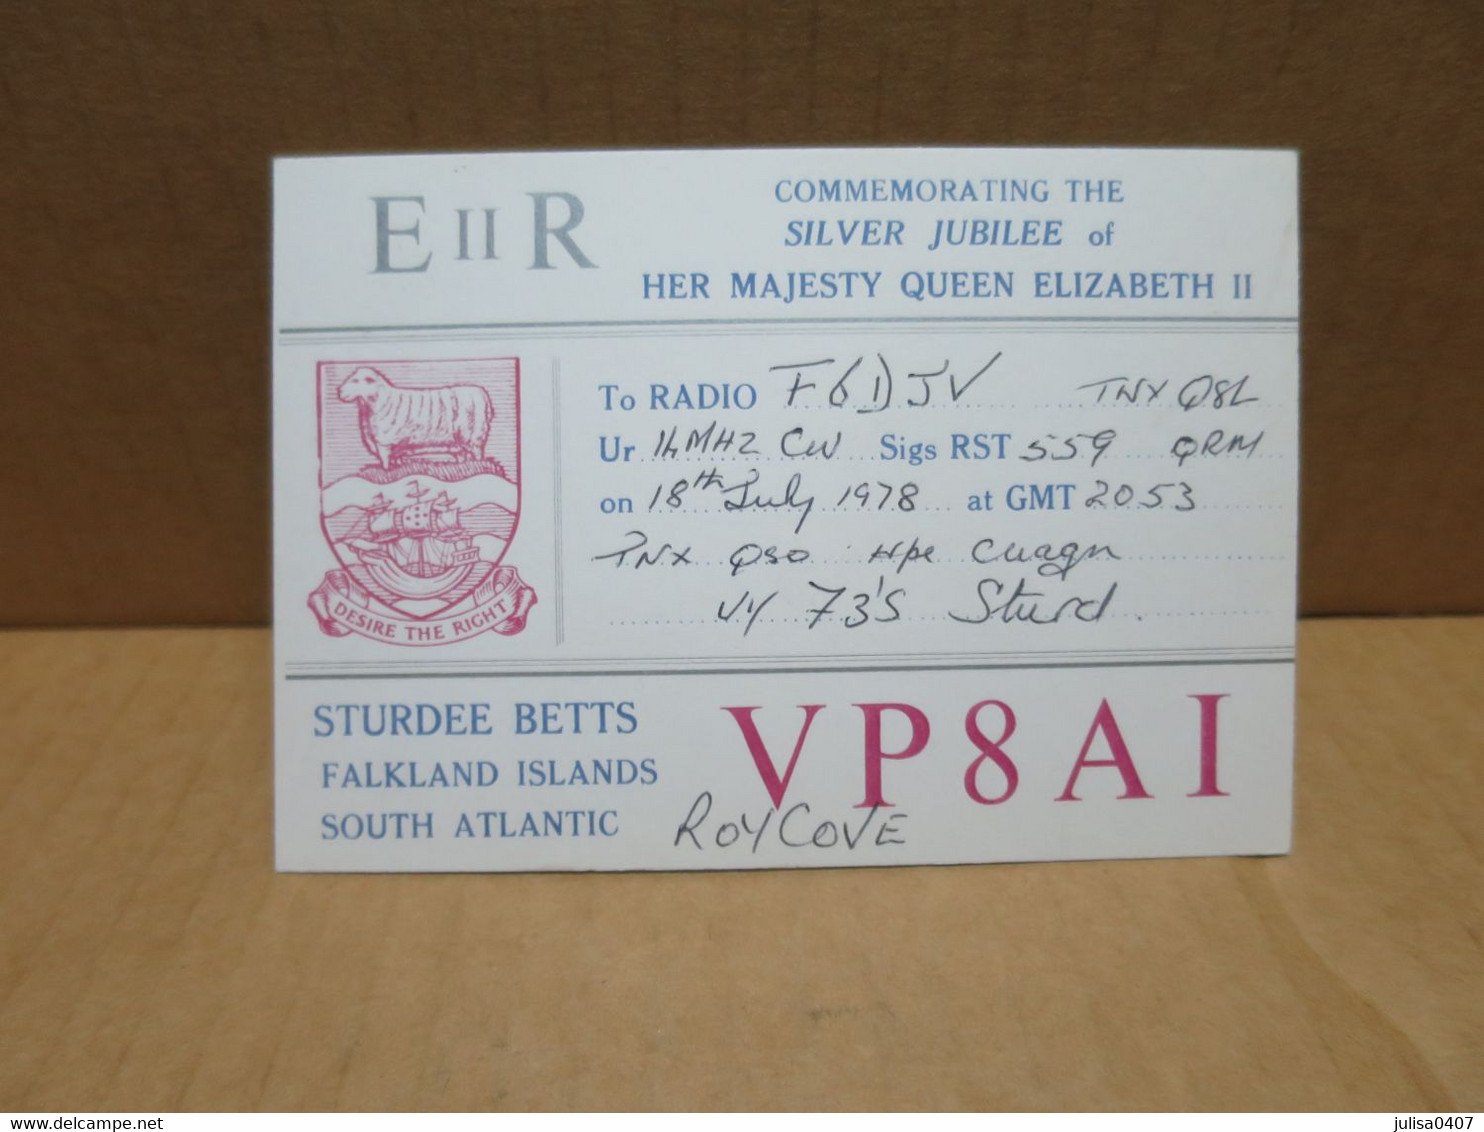 E II R
COMMEMORATING THE
SILVER JUBILEE of
HER MAJESTY QUEEN ELIZABETH II
To RADIO F6DJV TNX QSL
Ur 14MHZ CW Sigs RST 559 QRM
on 18th July 1978 at GMT 2053
TNX QSO Hpe Cuagn
VY 73'S Sturd.
DESIRE THE RIGHT
STURDEE BETTS
FALKLAND ISLANDS
SOUTH ATLANTIC
VP8AI
ROY COVE
delcampe.net
julisa0407